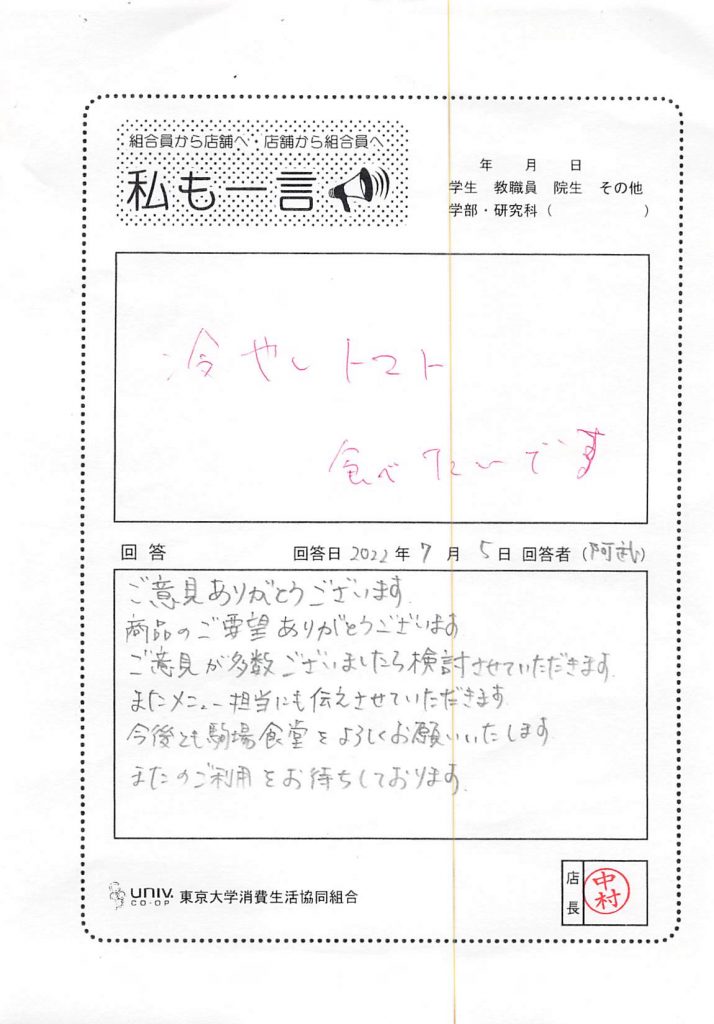 組合員から店舗へ・店舗から組合員へ
私も一言
年 月 日
学生 教職員 院生 その他
学部・研究科( )
冷やしトマト
食べたいです
回答 回答日 2022年 7月 5日 回答者(阿武)
ご意見ありがとうございます。
商品のご要望ありがとうございます
ご意見が多数ございましたら検討させていただきます。
またメニュー担当にも伝えさせていただきます
今後とも駒場食堂をよろしくお願いいたします
またのご利用をお待ちしております。
UNIV. CO-OP 東京大学消費生活協同組合
店長 中村